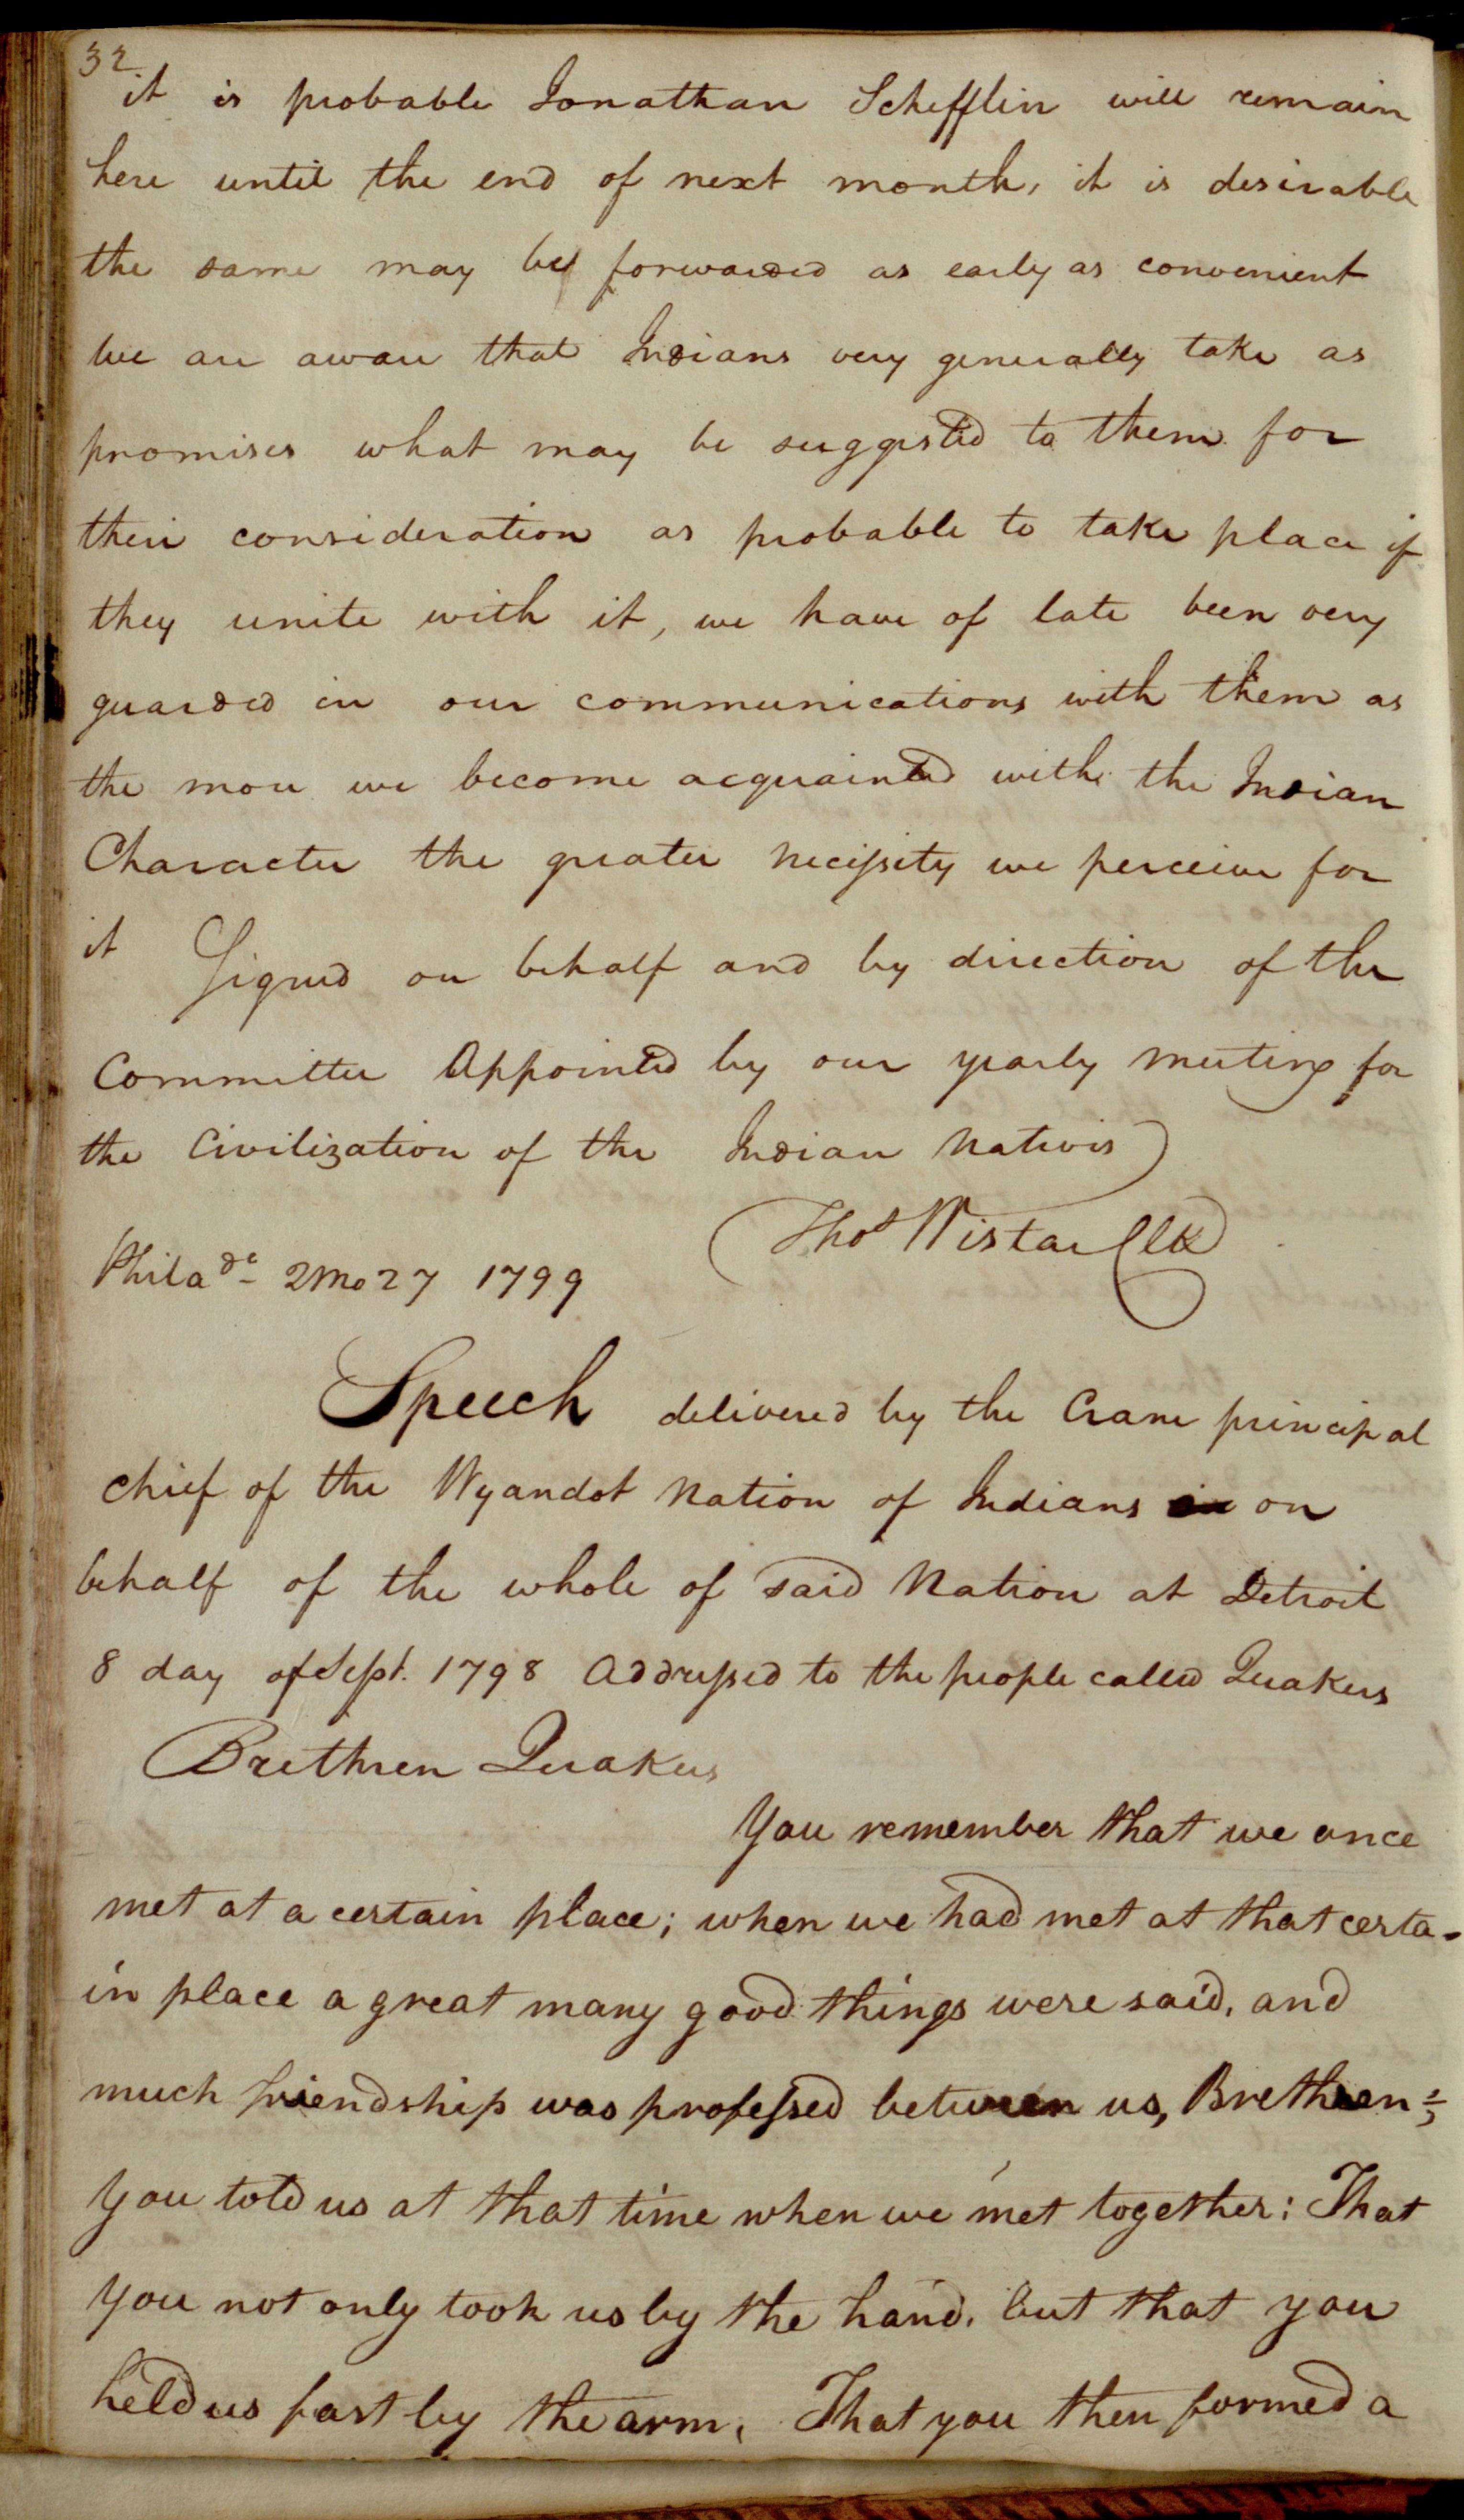 32
it is probable Jonathan Schefflin will remain
here until the end of next month, it is desirable
the same may be forwarded as early as convenient
we are aware that Indians very generally take as
promises what may be suggested to them for
their consideration as probable to take place if
they unite with it, we have of late been very
guarded in our communications with them as
the more we become acquainted with the Indian
Character the greater necessity we perceive for
it Signed on behalf and by direction of the
Committee Appointed by our yearly meeting for
the Civilization of the Indian Natives
Thos Wistar Clk
Philade 2mo 27 1799
Speech delivered by the Crane principal
chief of the Wyandot Nation of Indians in on
behalf of the whole of said Nation at Detroit
8 day of Sept. 1798 addressed to the people called Quakers
Brethren Quakers
You remember that we once
met at a certain place; when we had met at that certa-
in place a great many good things were said, and
much friendship was professed between us, Brethren;
you told us at that time when we met together: That
you not only took us by the hand, but that you
held us fast by the arm, That you then formed a